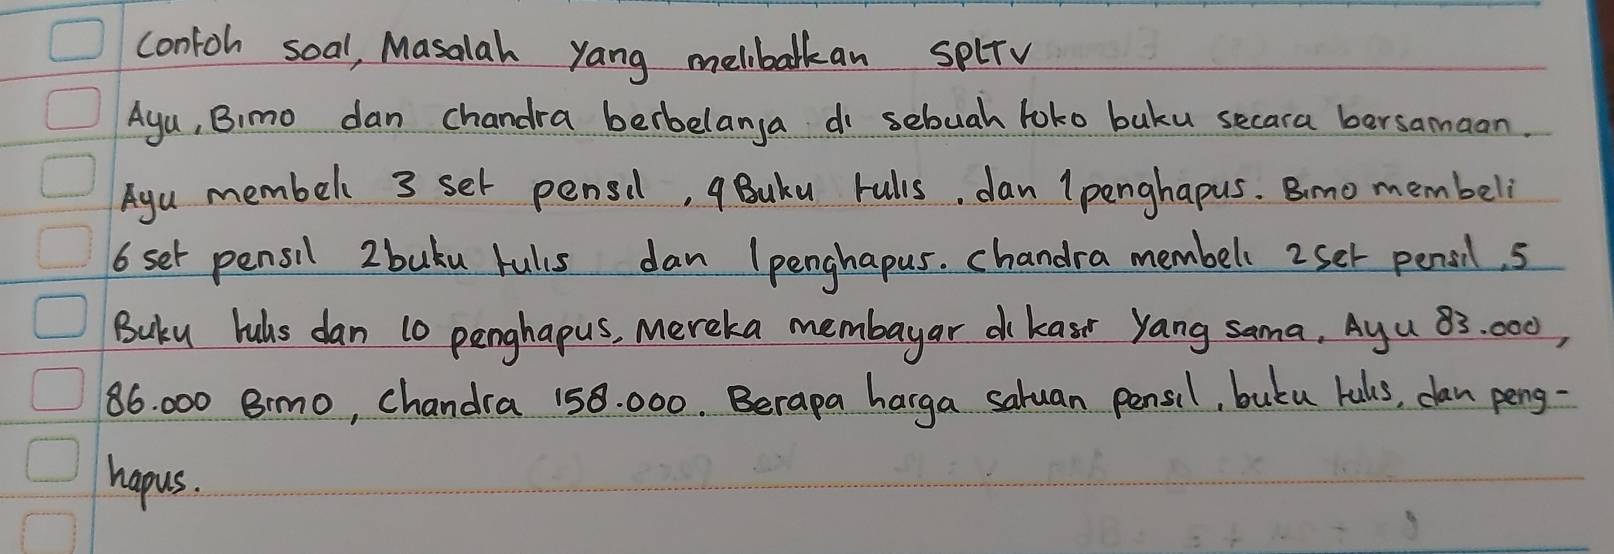 Contoh soal, Masalah yang melibatkan SPLTV
Ayu, Bimo dan Chandra berbelanja di sebuah toko buku secara bersamaan.
Ayu membeli 3 set pensil, 4 Buku tulis, dan 1 penghapus. Bimo membeli
6 set pensil 2 buku tulis dan 1 penghapus. Chandra membeli 2 set pensil, 5
Buku tulis dan 10 penghapus, Mereka membayar di kasir yang sama, Ayu 83.000,
86.000 Bimo, Chandra 158.000. Berapa harga satuan pensil, buku tulis, dan peng-
hapus.